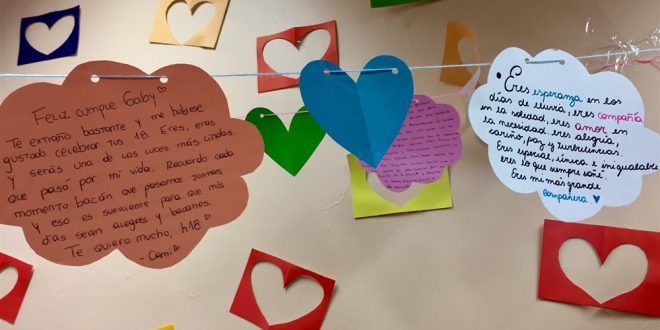 Feliz cumple Gaby
Te extraño bastante y me hubiese
gustado celebrar tus 18. Eres, eras
y serás una de las luces más lindas
que pasó por mi vida. Recuerdo cada
momento bacán que pasamos juntas,
y eso es suficiente para que mis
días sean alegres y bacanes.
Te quiero mucho, h18
-Cami
Eres esperanza en los
días de lluvia, eres compañía
en la soledad, eres amor en
la necesidad, eres alegría,
cariño, paz y turbulencias.
Eres especial, única e inigualable
eres lo que siempre soñé
Eres mi más grande
compañera.